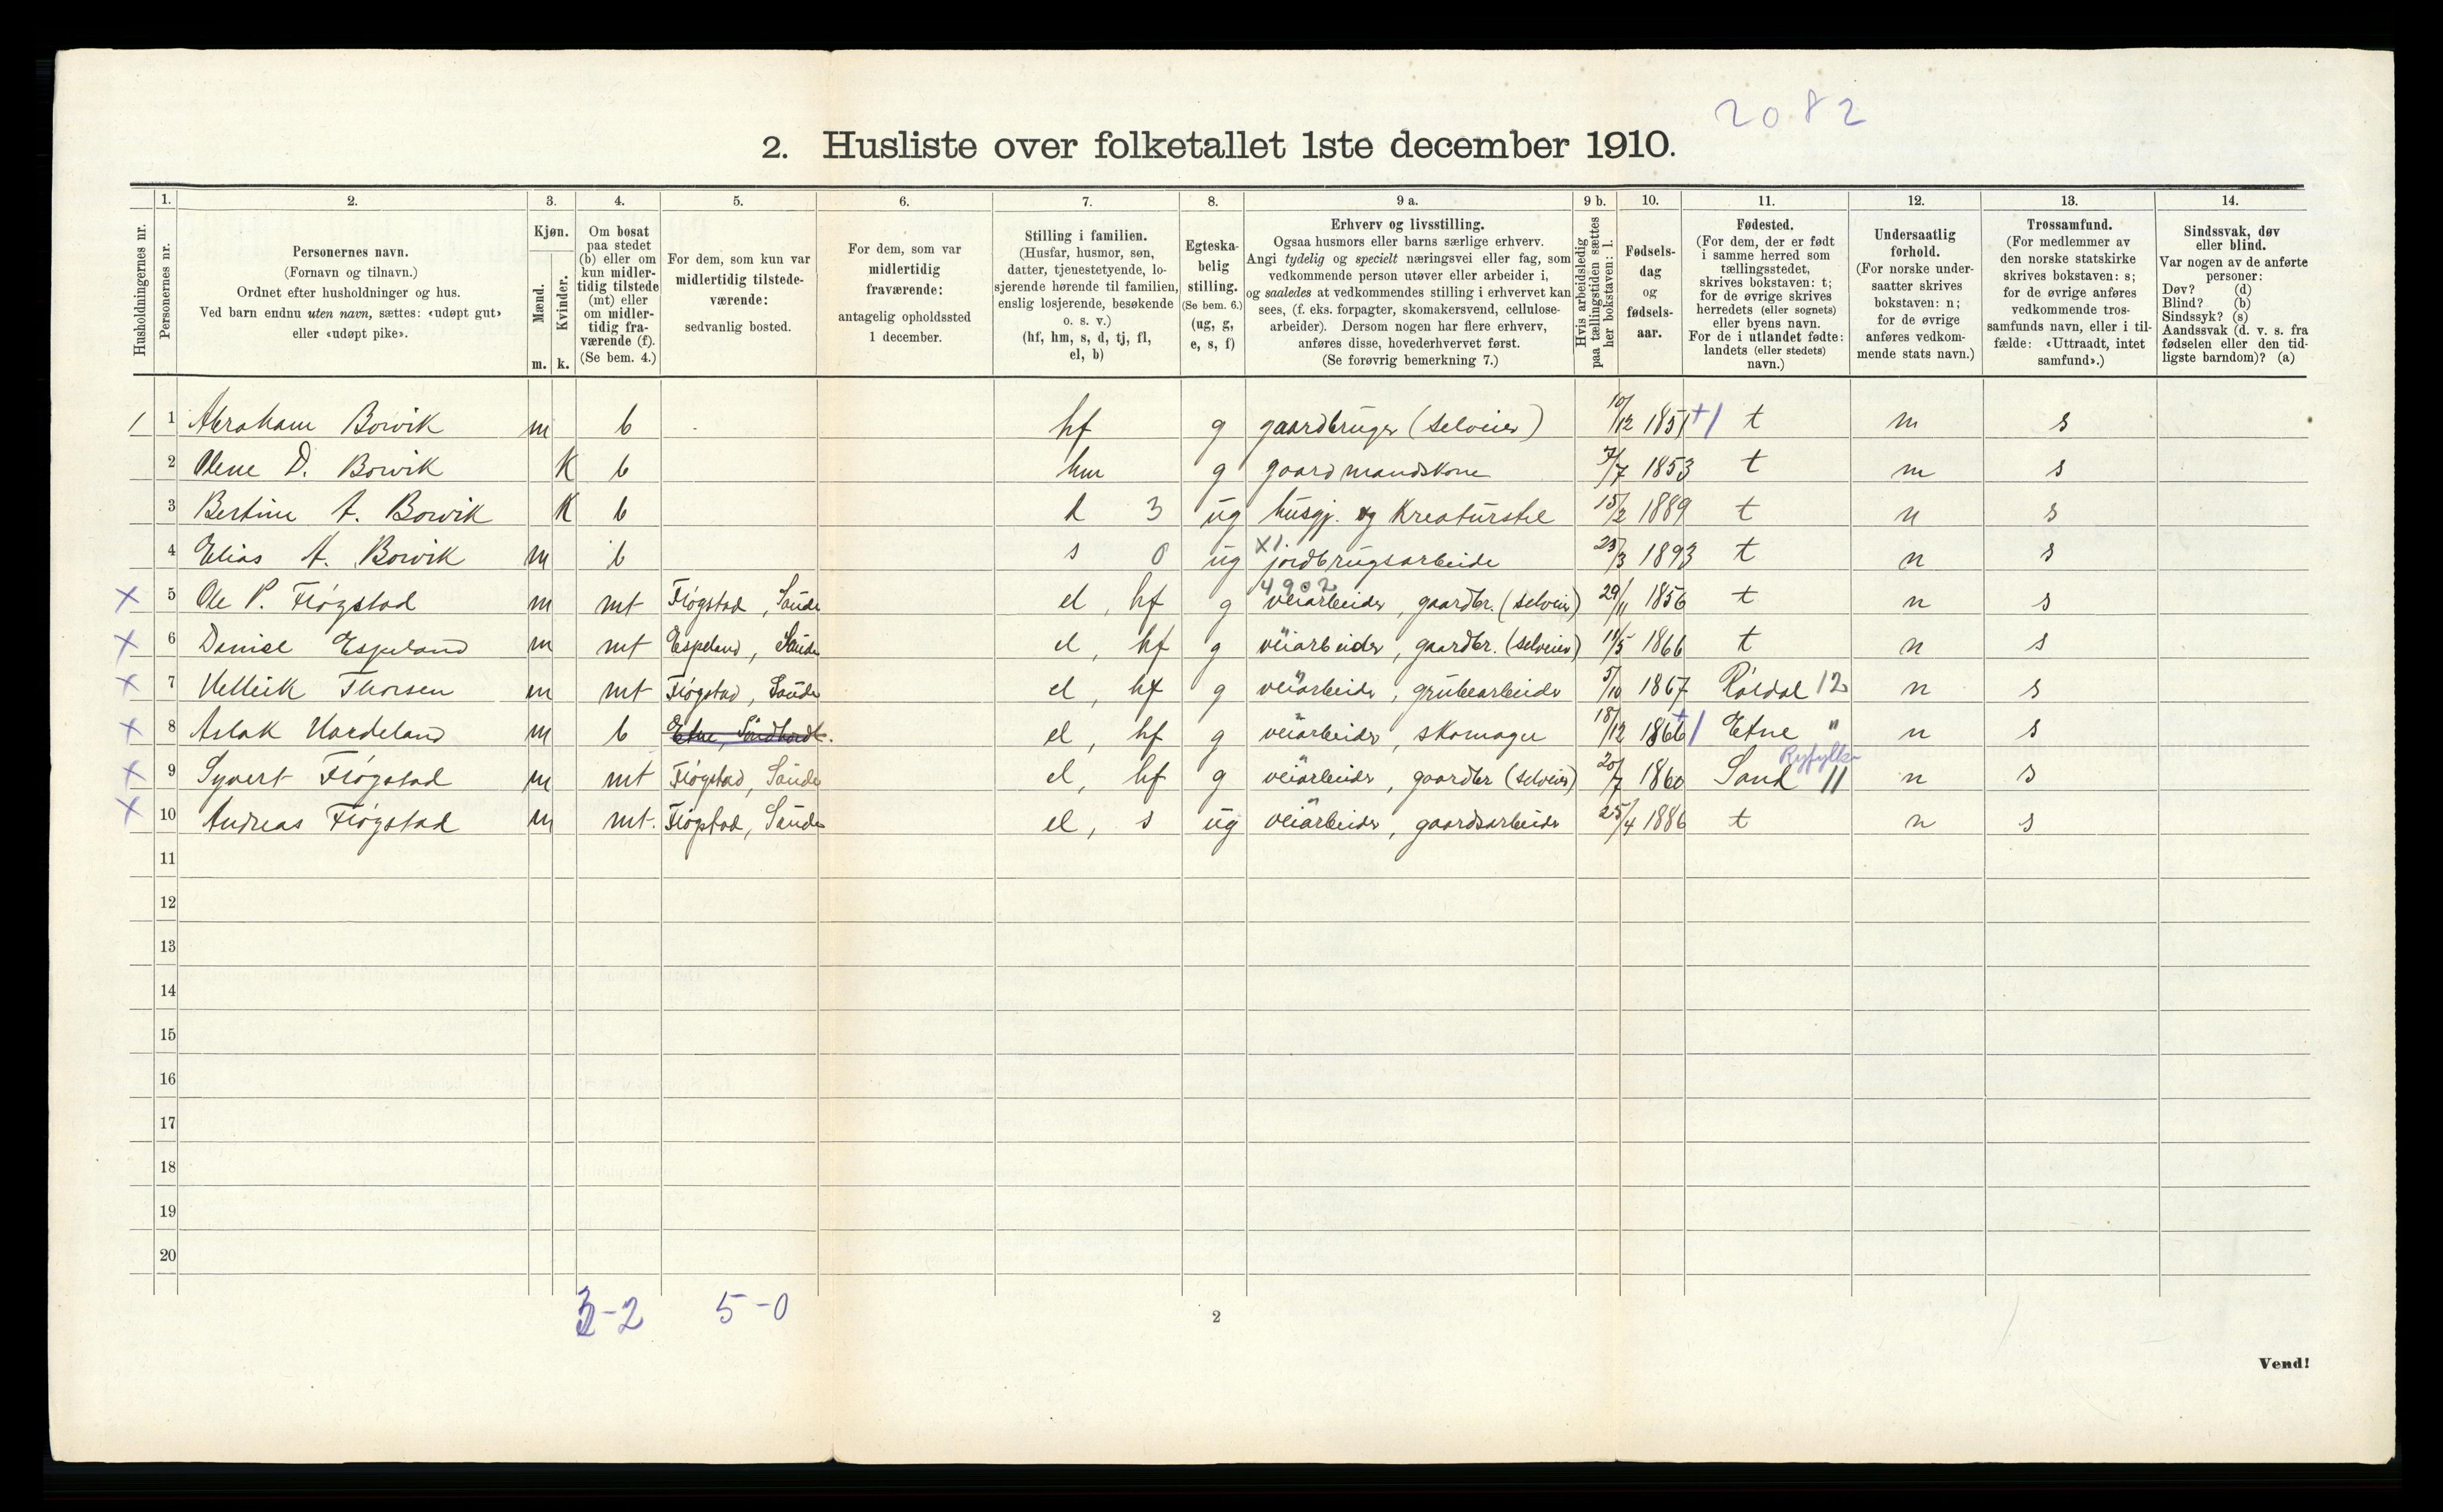 2082
2. Husliste over folketallet 1ste december 1910.
Husholdningernes nr.
1. Personernes nr.
2. Personernes navn. (Fornavn og tilnavn.) Ordnet efter husholdninger og hus. Ved barn endnu uten navn, sættes: «udøpt gut» eller «udøpt pike».
3. Kjøn. Mænd. m. Kvinder. k.
4. Om bosat paa stedet (b) eller om kun midler-tidig tilstede (mt) eller om midler-tidig fra-værende (f). (Se bem. 4.)
5. For dem, som kun var midlertidig tilstede-værende: sedvanlig bosted.
6. For dem, som var midlertidig fraværende: antagelig opholdssted 1 december.
7. Stilling i familien. (Husfar, husmor, søn, datter, tjenestetyende, lo-sjerende hørende til familien, enslig losjerende, besøkende o. s. v.) (hf, hm, s, d, tj, fl, el, b)
8. Egteska-belig stilling. (Se bem. 6.) (ug, g, e, s, f)
9 a. Erhverv og livsstilling. Ogsaa husmors eller barns særlige erhverv. Angi tydelig og specielt næringsvei eller fag, som vedkommende person utøver eller arbeider i, og saaledes at vedkommendes stilling i erhvervet kan sees, (f. eks. forpagter, skomakersvend, cellulose-arbeider). Dersom nogen har flere erhverv, anføres disse, hovederhvervet først. (Se forøvrig bemerkning 7.)
9 b. Hvis arbeidsledig paa tællingstiden sættes her bokstaven: l.
10. Fødsels-dag og fødsels-aar.
11. Fødested. (For dem, der er født i samme herred som tællingsstedet, skrives bokstaven: t; for de øvrige skrives herredets (eller sognets) eller byens navn. For de i utlandet fødte: landets (eller stedets) navn.)
12. Undersaatlig forhold. (For norske under-saatter skrives bokstaven: n; for de øvrige anføres vedkom-mende stats navn.)
13. Trossamfund. (For medlemmer av den norske statskirke skrives bokstaven: s; for de øvrige anføres vedkommende tros-samfunds navn, eller i til-fælde: «Uttraadt, intet samfund».)
14. Sindssvak, døv eller blind. Var nogen av de anførte personer: Døv? (d) Blind? (b) Sindssyk? (s) Aandssvak (d. v. s. fra fødselen eller den tid-ligste barndom)? (a)
1 1 Abraham Bowik m b hf g gaardbruger (selveier) 10/12 1851 +/ t n s
2 Olene D. Bowik K b hm g gaardmandskone 7/7 1853 t n s
3 Bertine A. Bowik K b d 3 ug husgj. og Kreaturstel 15/2 1889 t n s
4 Elias A. Bowik m b s 0 ug X1. jordbrugsarbeide 23/3 1893 t n s
4902
X 5 Ole P. Fløgstad m mt Fløgstad, Saude el, hf g veiarbeider, gaardbr. (selveier) 29/11 1856 t n s
X 6 Daniel Espeland m mt Espeland, Saude el, hf g veiarbeider, gaardbr. (selveier) 11/5 1866 t n s
X 7 Helleik Thorsen m mt Fløgstad, Saude el, hf g veiarbeider, grubearbeider 5/10 1867 Røldal 12 n s
X 8 Aslak Hardeland m b Etne, Søndhordl. el, hf g veiarbeider, skomager 18/12 1866 +/ Etne " n s
Ryfylke
X 9 Syvert Fløgstad m mt Fløgstad, Saude el, hf g veiarbeider, gaardbr (selveier) 20/7 1860 Sand 11 n s
X 10 Andreas Fløgstad m mt. Fløgstad, Saude el, s ug veiarbeider, gaardsarbeider 25/4 1886 t n s
11
12
13
14
15
16
17
18
19
20
3-2 5-0
2
Vend!